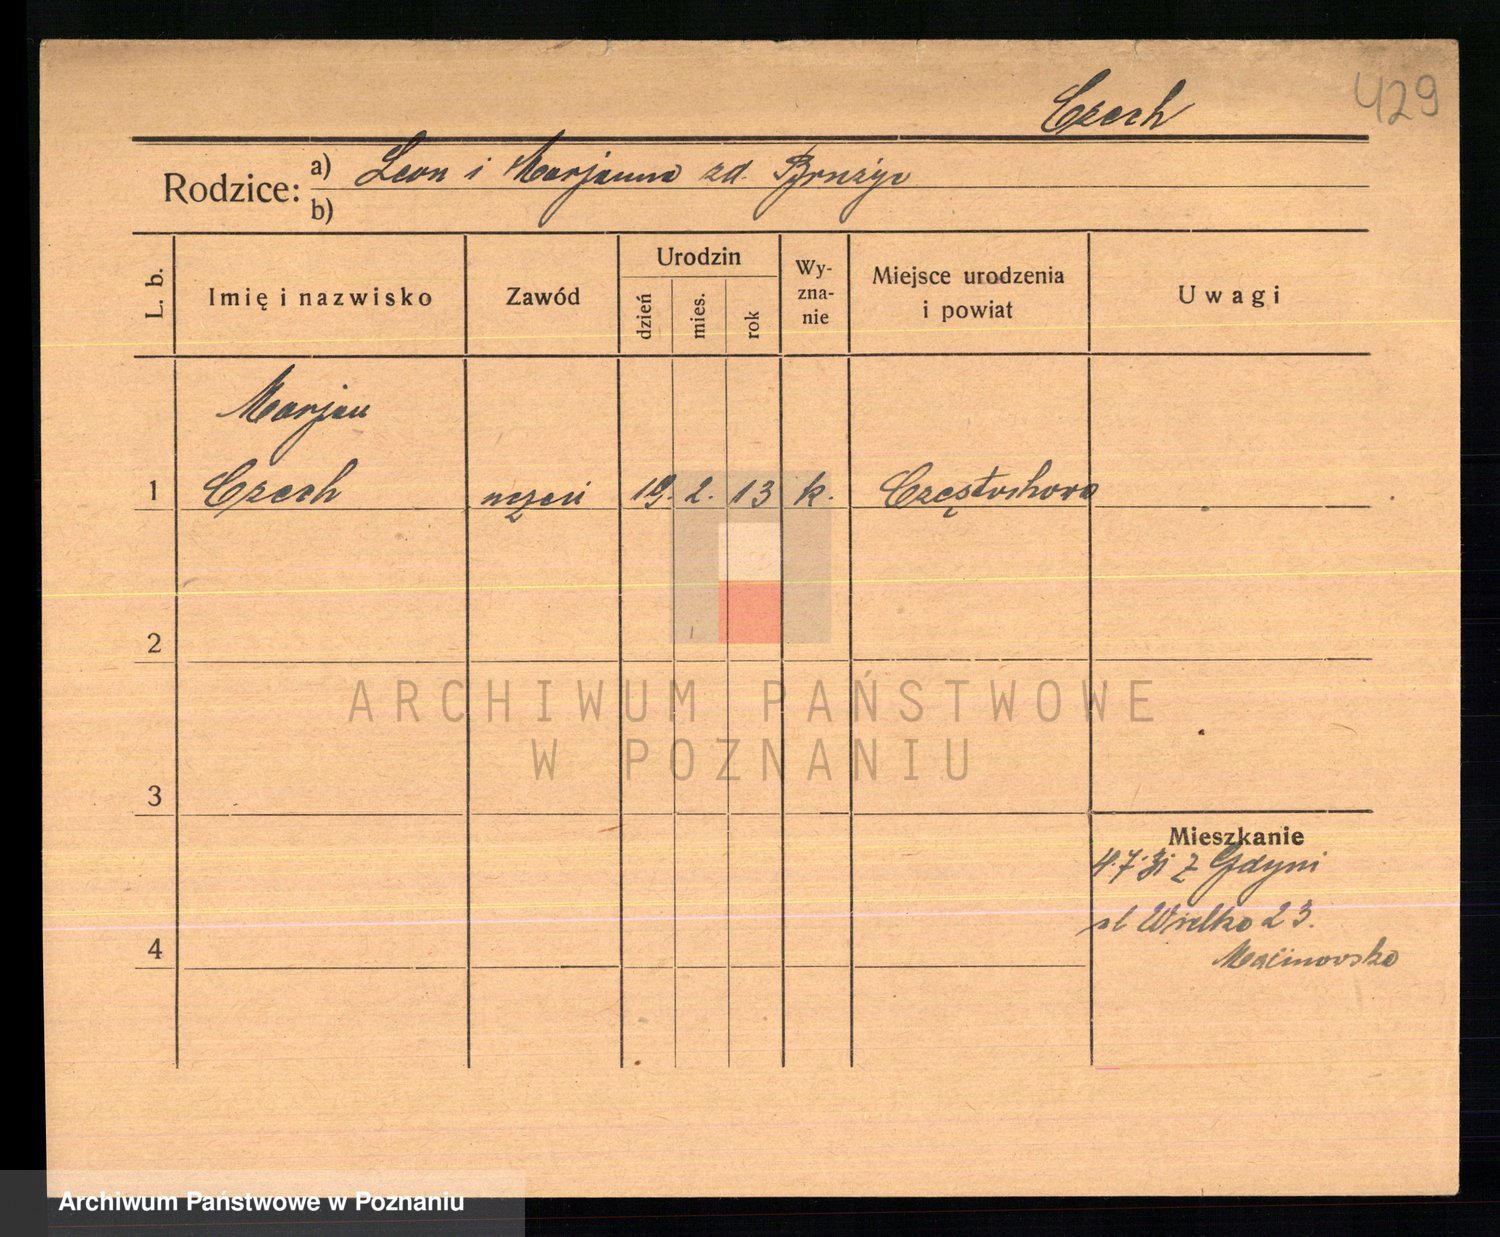 429
Czech
Rodzice: a) Leon i Marjanna zd.
b)
L. b.
Imię i nazwisko
Zawód
Urodzin
dzień
mies.
rok
Wy-
zna-
nie
Miejsce urodzenia
i powiat
Uwagi
Marjan
1 Czech uczeń 19. 2. 13 k. Częstochowa
2
3
4
Mieszkanie
4.7.31 z Gdyni
ul Wielka 23.
ARCHIWUM PAŃSTWOWE
W POZNANIU
Archiwum Państwowe w Poznaniu